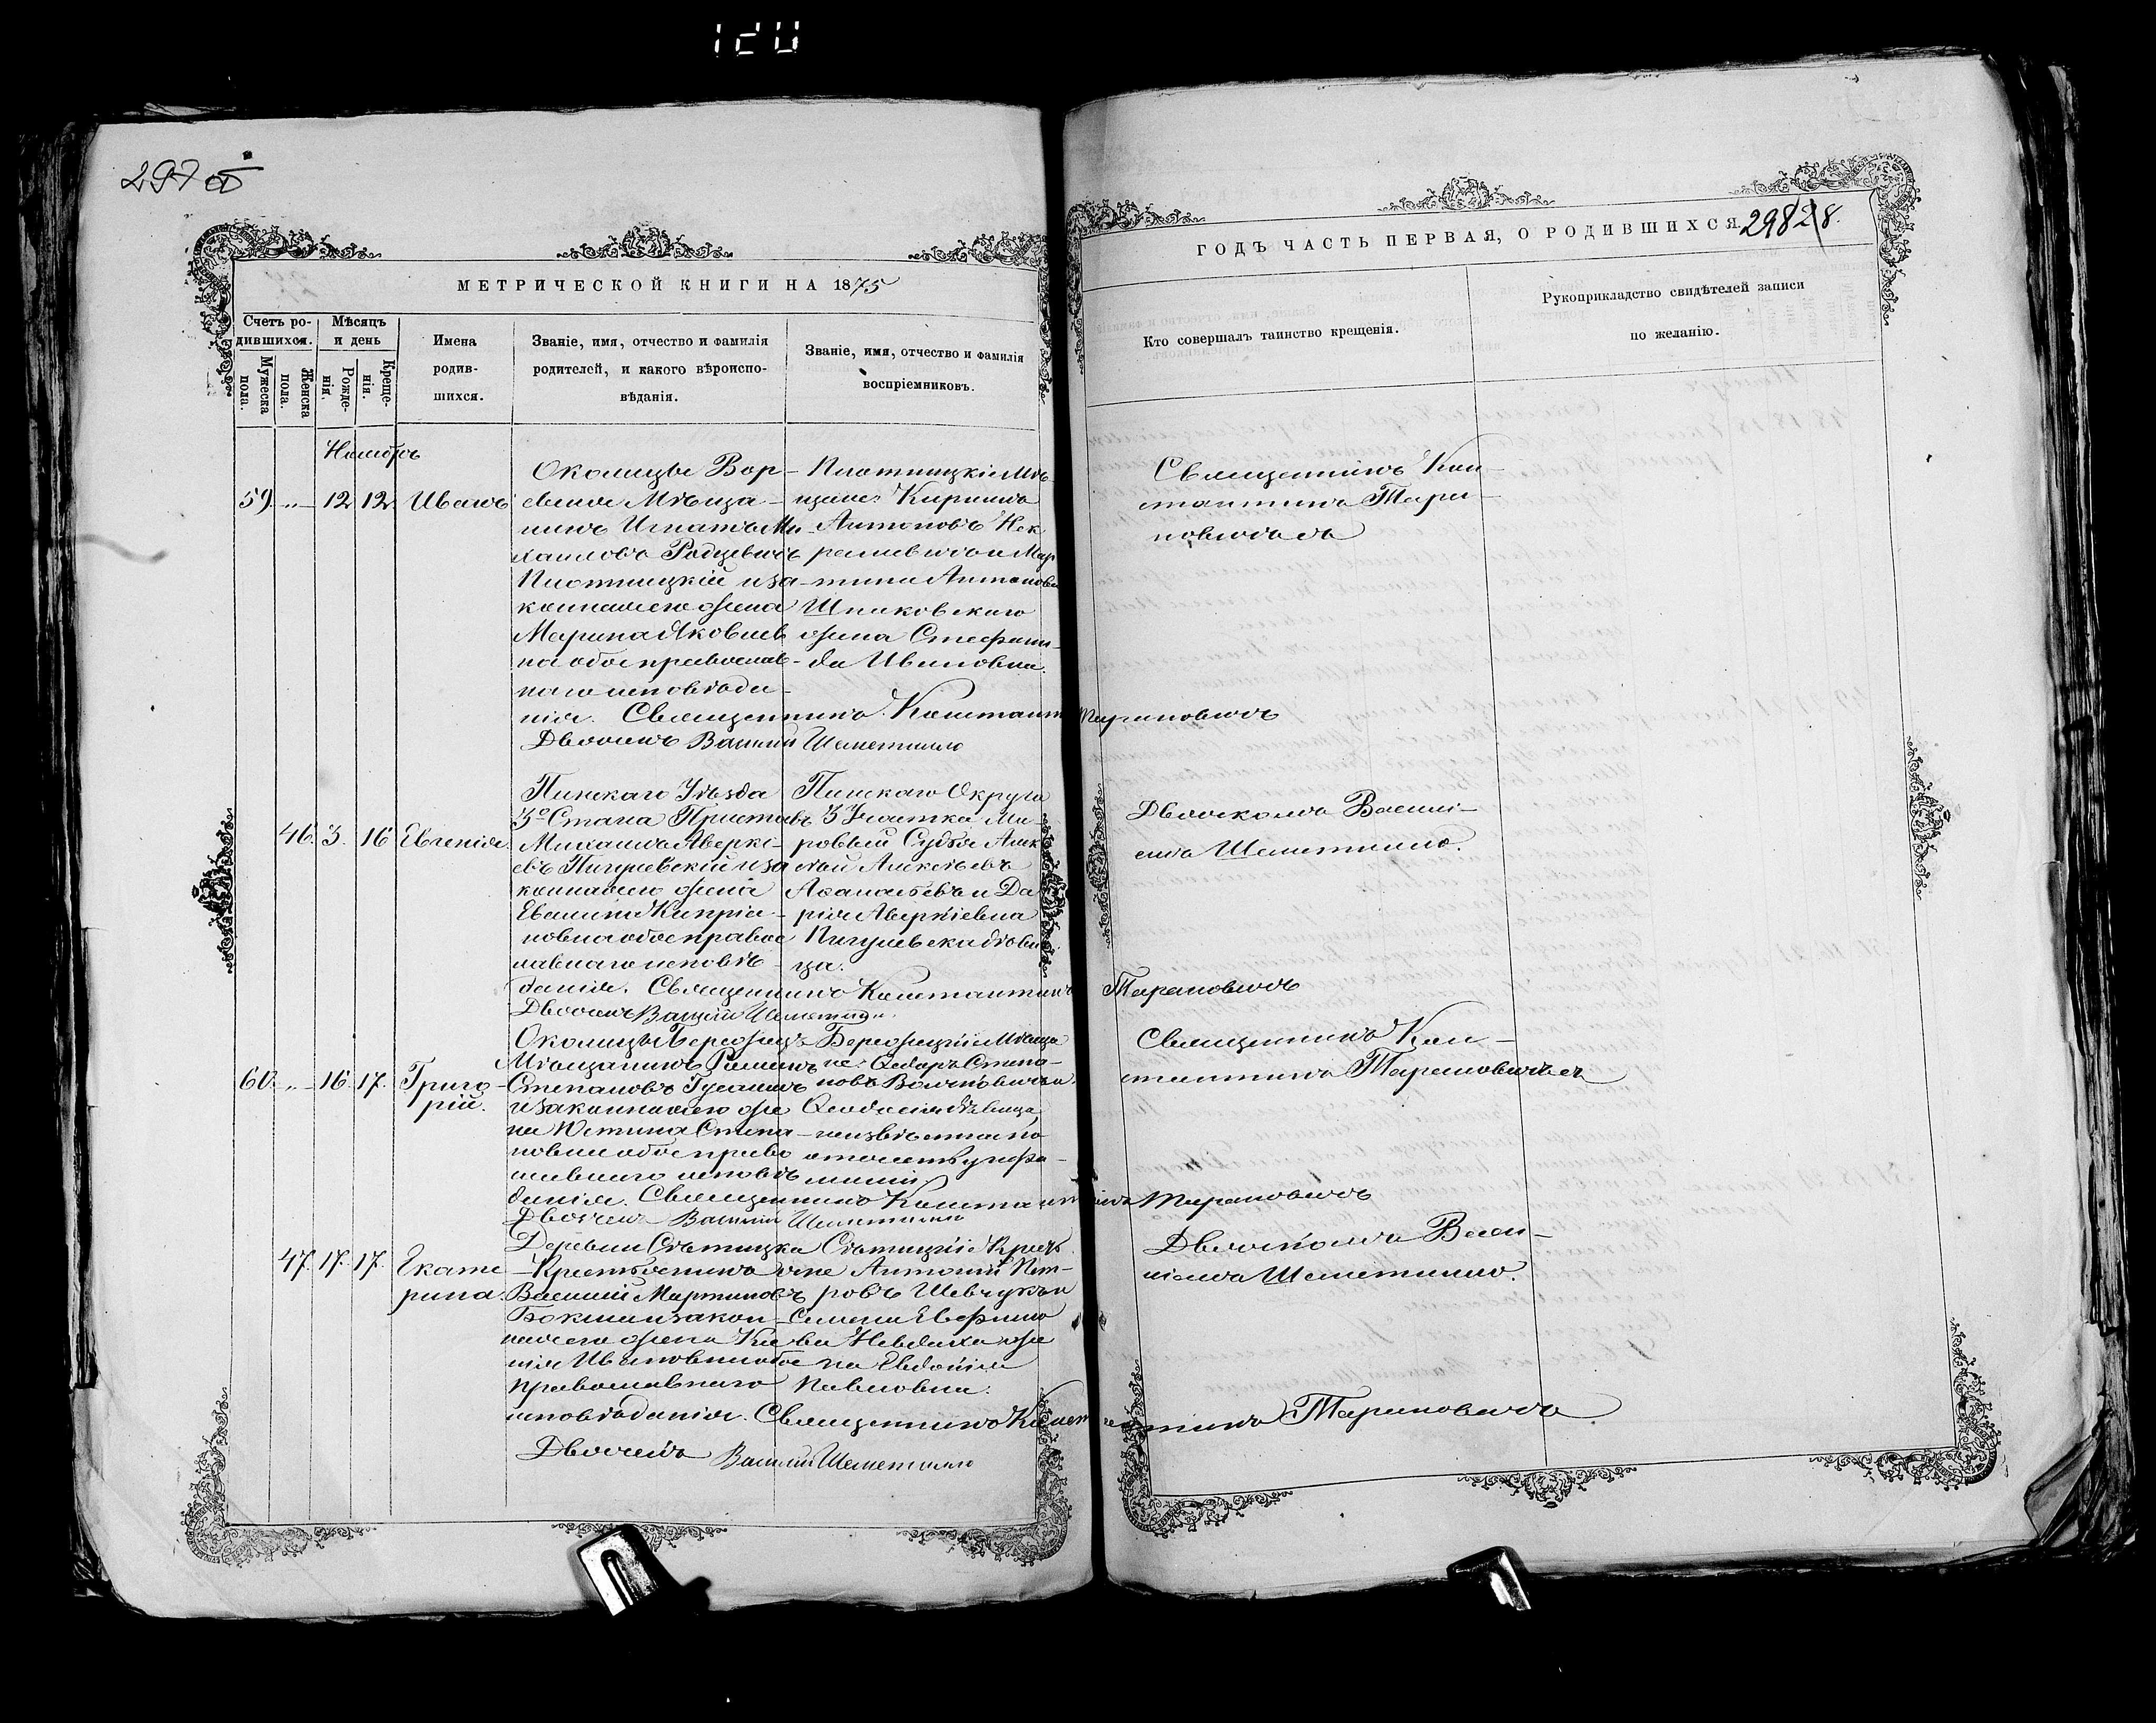 120
297 об
МЕТРИЧЕСКОЙ КНИГИ НА 1875
Счетъ ро-
дившихся.
Мужеска
пола.
Женска
пола.
Мѣсяцъ
и день
Рожде-
нія.
Креще-
нія.
Имена
родив-
шихся.
Званіе, имя, отчество и фамилія
родителей, и какого вѣроиспо-
вѣданія.
Званіе, имя, отчество и фамилія
воспріемниковъ.
Ноябрь
59. „ 12 12 Иванъ
Околицы Вор-
евичи Мѣща-
нинъ Игнатъ Ми-
хаиловъ Родцевичъ
Плотницкій и за-
конная его жена
Марина Яковлев
на обое православ-
наго исповѣда-
нія. Священникъ Константинъ Тариновичъ
Дьячекъ Василій Шеметилло
Плотницкіе Мѣ-
щане: Кирилъ
Антоновъ
и Мар-
тина Антонова
Шпаковскаго
жена Стефани-
да Ивановна.
46. 3. 16 Евгенія.
Пинскаго Уѣзда
3го Стана Приставъ
Михаилъ Аверкі-
евъ Пигулевскій и за
конная его жена
Евгенія Кипріа-
новна обое правос
лавнаго исповѣ-
данія. Священникъ Константинъ Тарановичъ
Дьячекъ Василій Шеметилло
Пинскаго Округа
3 Участка Ми-
ровый Судья Алек
сѣй Алексѣевъ
Аѳанасьевъ и Да
рія Аверкіевна
Пигулевская дѣви
ца.
60. „ 16. 17. Григо-
рій.
Околицы Бережцы
Мѣщанинъ Романъ
Степановъ Гусаковъ
и законная его же
на Юстина Степа-
новна обое право
славнаго исповѣ
данія. Священникъ Константинъ Тарановичъ
Дьячекъ Василій Шеметилло
Бережецкіе Мѣща
не: Ѳедоръ Степа-
новъ Волчковичъ и
Ѳеодосія дѣвица
неизвѣстная по
отчеству
47. 17. 17. Екате
рина.
Деревни Сѣтицка
Крестьянинъ
Василій Мартиновъ
Бокша и закон-
ная его жена Ксе
нія Ивановна обое
православнаго
исповѣданія. Священникъ Константинъ Тариновичъ.
Дьячекъ Василій Шеметилло
Сѣтицкіе Кресть
яне Антоній Пет-
ровъ Шевчукъ и
Семена Евфимо
ва Невдаха же
на Евдокія
Павловна.
ГОДЪ ЧАСТЬ ПЕРВАЯ, О РОДИВШИХСЯ.
298
Кто совершалъ таинство крещенія.
Рукоприкладство свидѣтелей записи
по желанію.
Священникъ Кон-
стантинъ Тари-
новичъ съ
Дьячкомъ Васи-
емъ Шеметилло.
Священникъ Кон-
стантинъ Тарановичъ съ
Дьячкомъ Васи-
ліемъ Шеметилло.